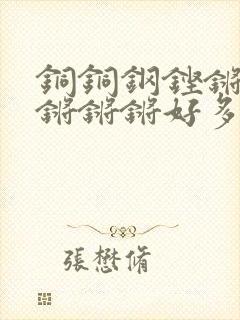 銅銅鋼鏗鏘
鏘鏘鏘好多
張懋脩